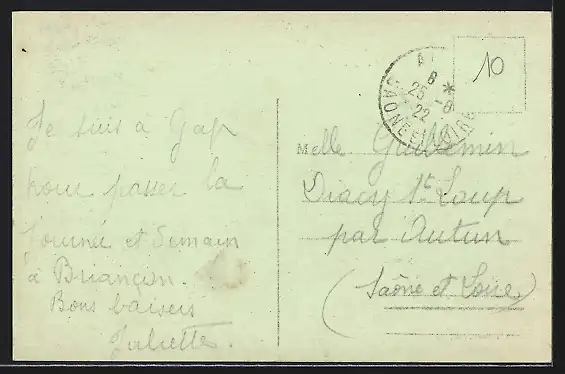 Je suis à Gap
pour passer la
journée et demain
à Briançon.
Bons baisers
Juliette.
Melle Guillemin
Dracy St Loup
par Autun
(Saône et Loire)
10
A
6 *
25 -8
22
SAONE ET LOIRE